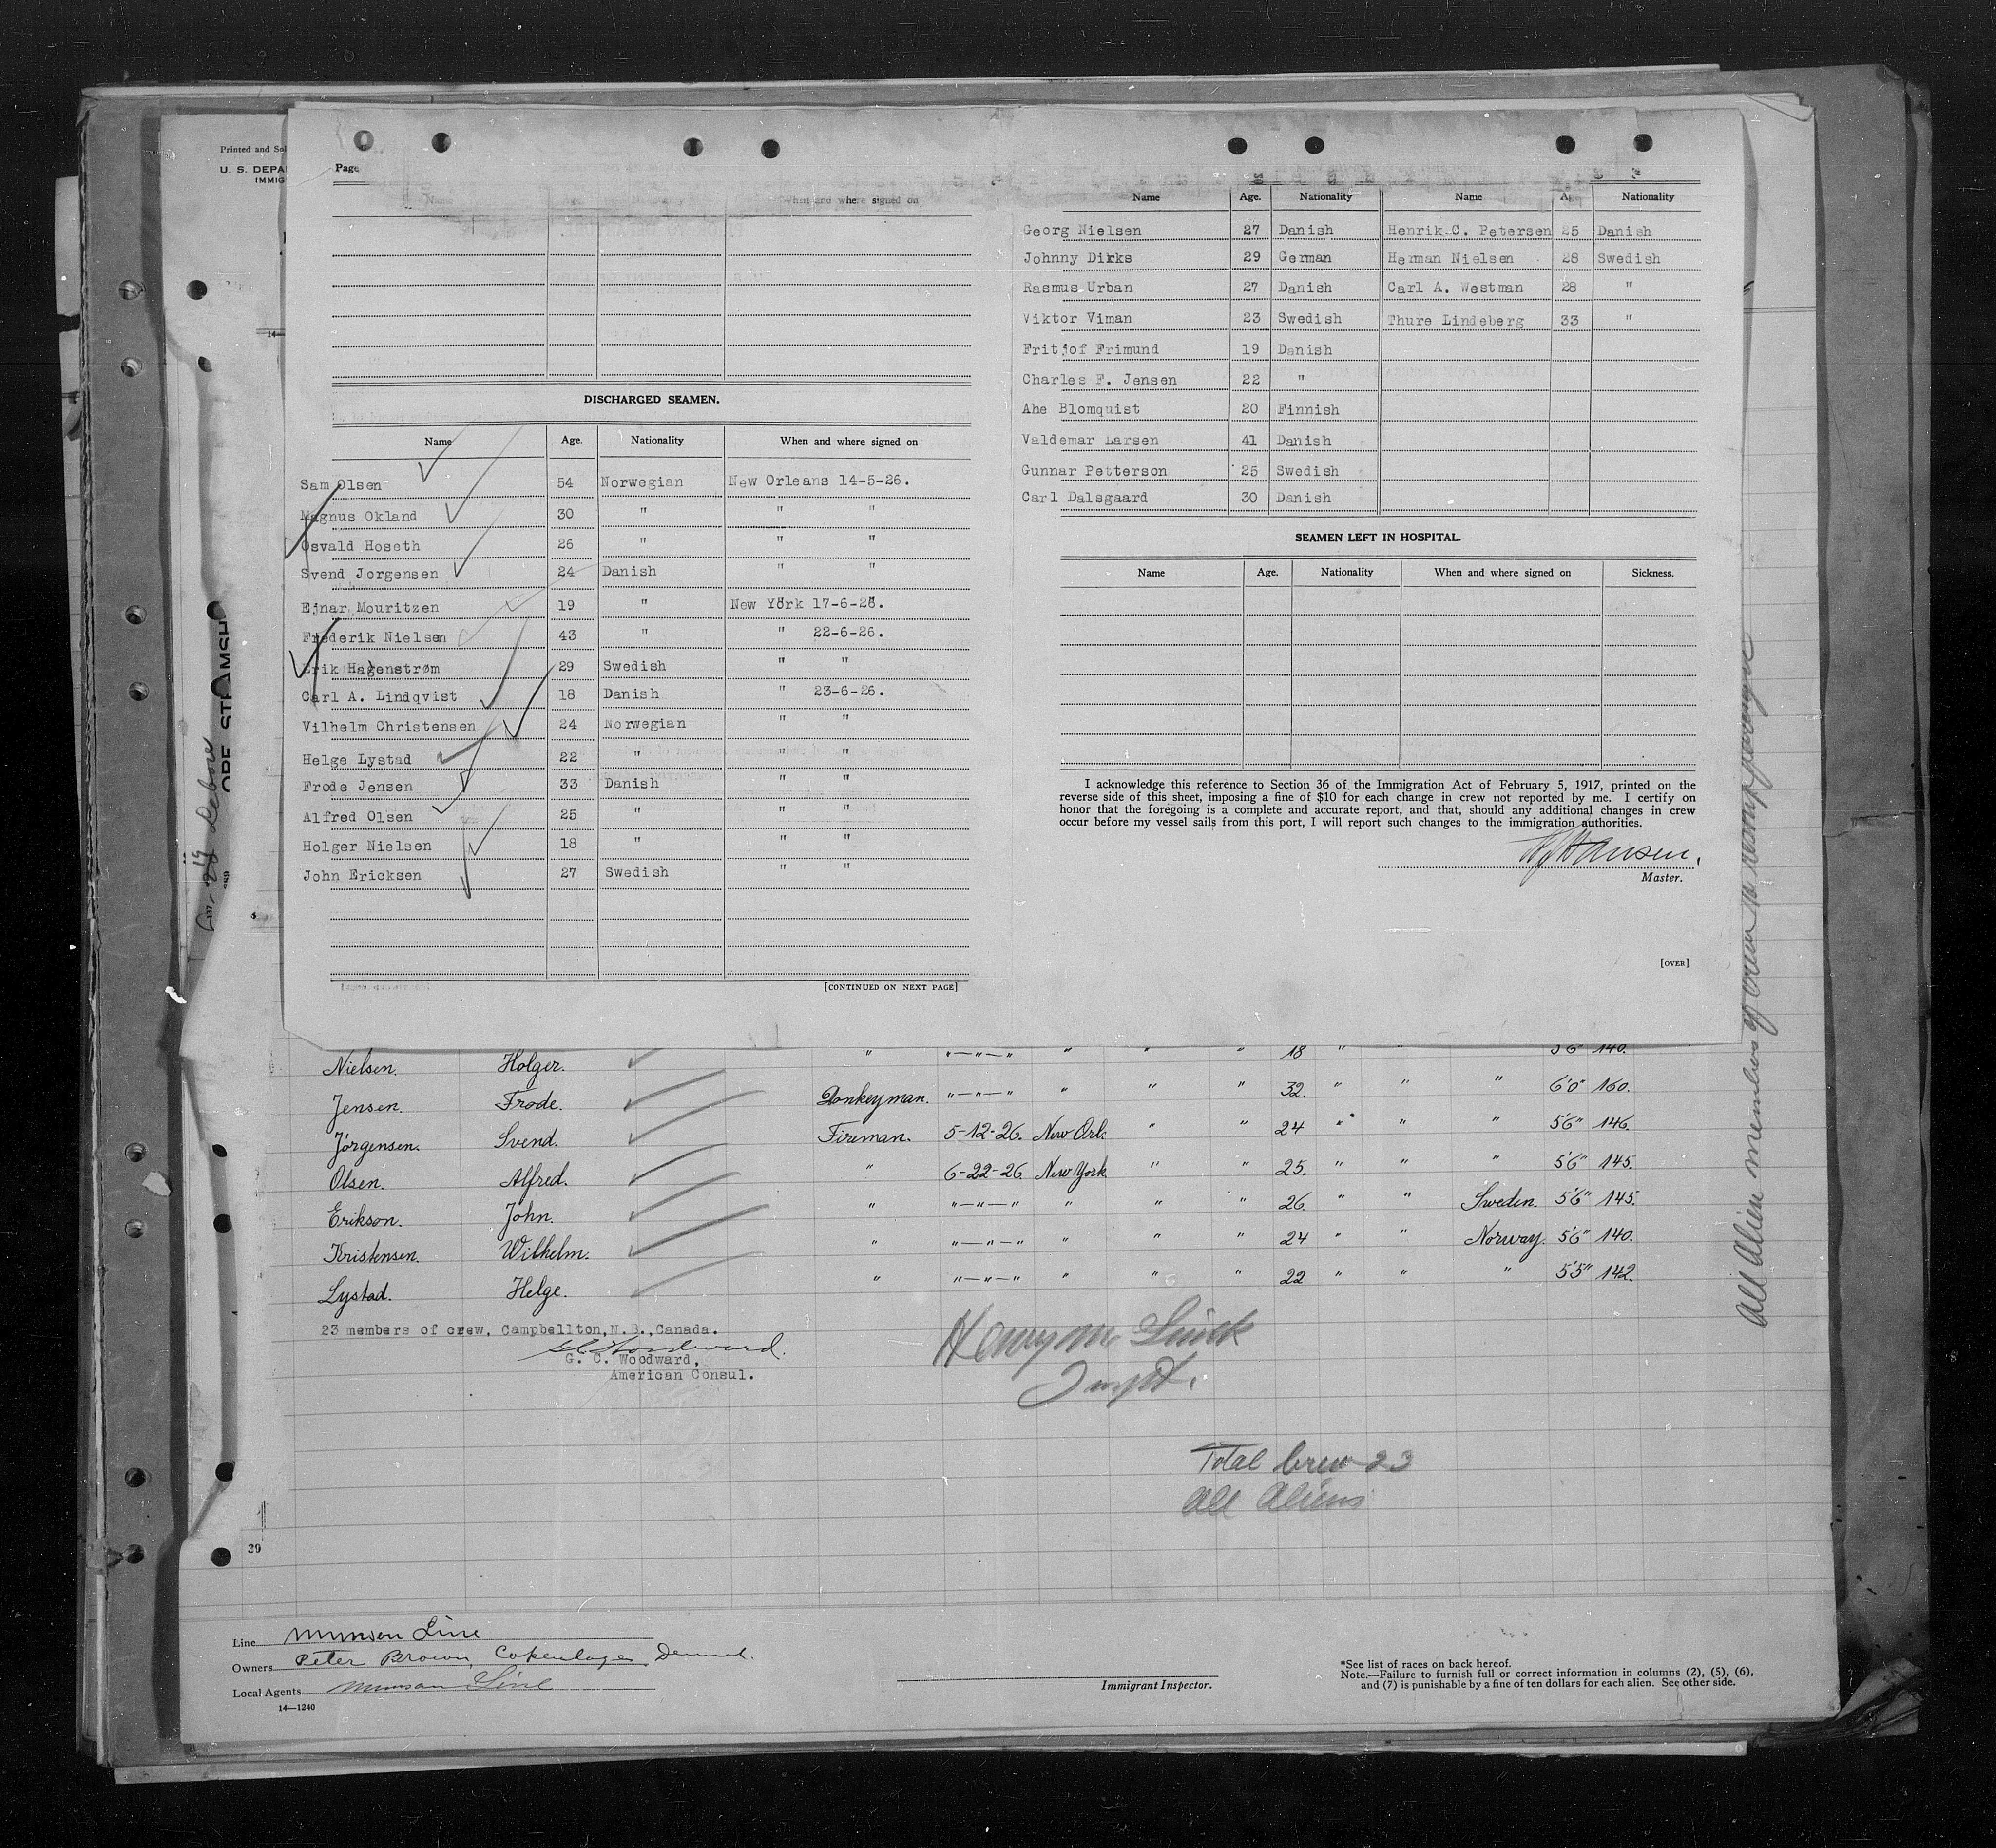 Printed and Sol
U. S. DEPA
IMMIG
Page
Name Age. Nationality When and where signed on
DISCHARGED SEAMEN.
Name Age. Nationality When and where signed on
Sam Olsen 54 Norwegian New Orleans 14-5-26.
Magnus Okland 30 " " "
Osvald Hoseth 26 " " "
Svend Jorgensen 24 Danish " "
Ejnar Mouritzen 19 " New York 17-6-26.
Frederik Nielsen 43 " " 22-6-26.
Erik Hagenstrøm 29 Swedish " "
Carl A. Lindqvist 18 Danish " 23-6-26.
Vilhelm Christensen 24 Norwegian " "
Helge Lystad 22 " " "
Frode Jensen 33 Danish " "
Alfred Olsen 25 " " "
Holger Nielsen 18 " " "
John Ericksen 27 Swedish " "
[CONTINUED ON NEXT PAGE]
Name Age. Nationality Name Age Nationality
Georg Nielsen 27 Danish Henrik C. Petersen 25 Danish
Johnny Dirks 29 German Herman Nielsen 28 Swedish
Rasmus Urban 27 Danish Carl A. Westman 28 "
Viktor Viman 23 Swedish Thure Lindeberg 33 "
Fritjof Frimund 19 Danish
Charles F. Jensen 22 "
Ahe Blomquist 20 Finnish
Valdemar Larsen 41 Danish
Gunnar Petterson 25 Swedish
Carl Dalsgaard 30 Danish
SEAMEN LEFT IN HOSPITAL.
Name Age. Nationality When and where signed on Sickness.
I acknowledge this reference to Section 36 of the Immigration Act of February 5, 1917, printed on the
reverse side of this sheet, imposing a fine of $10 for each change in crew not reported by me. I certify on
honor that the foregoing is a complete and accurate report, and that, should any additional changes in crew
occur before my vessel sails from this port, I will report such changes to the immigration authorities.
Hansen.
Master.
[OVER]
Nielsen. Holger. " "—"—" " " " 18 " " 5'6" 140.
Jensen. Frode. Donkeyman. "—"—" " " " 32. " " " 6'0" 160.
Jörgensen. Svend. Fireman. 5-12-26. New Orl. " " 24 " " " 5'6" 146.
Olsen. Alfred. " 6-22-26 New York " " 25. " " " 5'6" 145.
Erikson. John. " "—"—" " " " 26. " " Sweden. 5'6" 145.
Kristensen. Wilhelm. " "—"—" " " " 24 " " Norway. 5'6" 140.
Lystad. Helge. " "—"—" " " " 22 " " " 5'5" 142.
23 members of crew, Campbellton,N.B.,Canada.
G. C. Woodward.
G. C. Woodward,
American Consul.
Henry M
Inspt.
Total Crew 23
All Aliens
29
All Alien members of crew to
Line Munson Line
Owners Peter Brown, Copenhagen, Denmark.
Local Agents Munson Line
14—1240
Immigrant Inspector.
*See list of races on back hereof.
Note.—Failure to furnish full or correct information in columns (2), (5), (6),
and (7) is punishable by a fine of ten dollars for each alien. See other side.